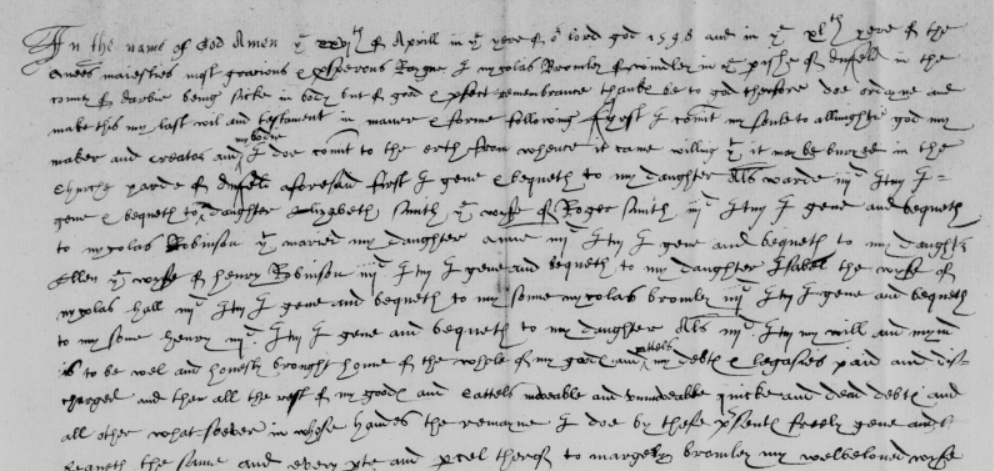 In the name of God Amen ye xxvjth of Aprill in ye yere of or lord god 1598 and in ye xlth yere of the
Quenes maiesties most gracious & psperous Raigne I nycolas Bromley of in ye pishe of duffeld in the
comety of darbie being sicke in body but of good & pfect remembrance thankes be to god therfore doe ordayne and
make this my last wil and testament in maner & forme following fyrst I comit my soule to allmightie god my
maker and creator and my bodie I doe comit to the erth from whence it came willing yt it may be buryed in the
churche yarde of duffeld aforesaid first I geve & bequeth to my daughter Als warde iiijd Itm I
geve & bequeth to daughter Elizabeth smith ye wyfe of Roger smith iiijd Itm I geve and bequeth
to nycolas Robinson yt maried my daughter anne iiijd Itm I geve and bequeth to my daughter
Ellen ye wyfe of henry Robinson iiijd Itm I geve and bequeth to my daughter Isabel the wyfe of
nycolas hall iiijd Itm I geve and bequeth to my sonne nycolas bromley iiijd Itm I geve and bequeth
to my sonne henry iiijd. Itm I geve and bequeth to my daughter Als iiijd. Itm my will and mynd
is to be wel and honestly brought home of the whole of my goods and cattells my debts & legasies paid and dis-
charged and then all the rest of my goods and cattels moveable and unmoveable quicke and dead debts and
all other what soever in whose handes the remayne I doe by these psents freely geve and
bequeth the same and every pte and pcel therof to margery bromley my welbeloved wyfe